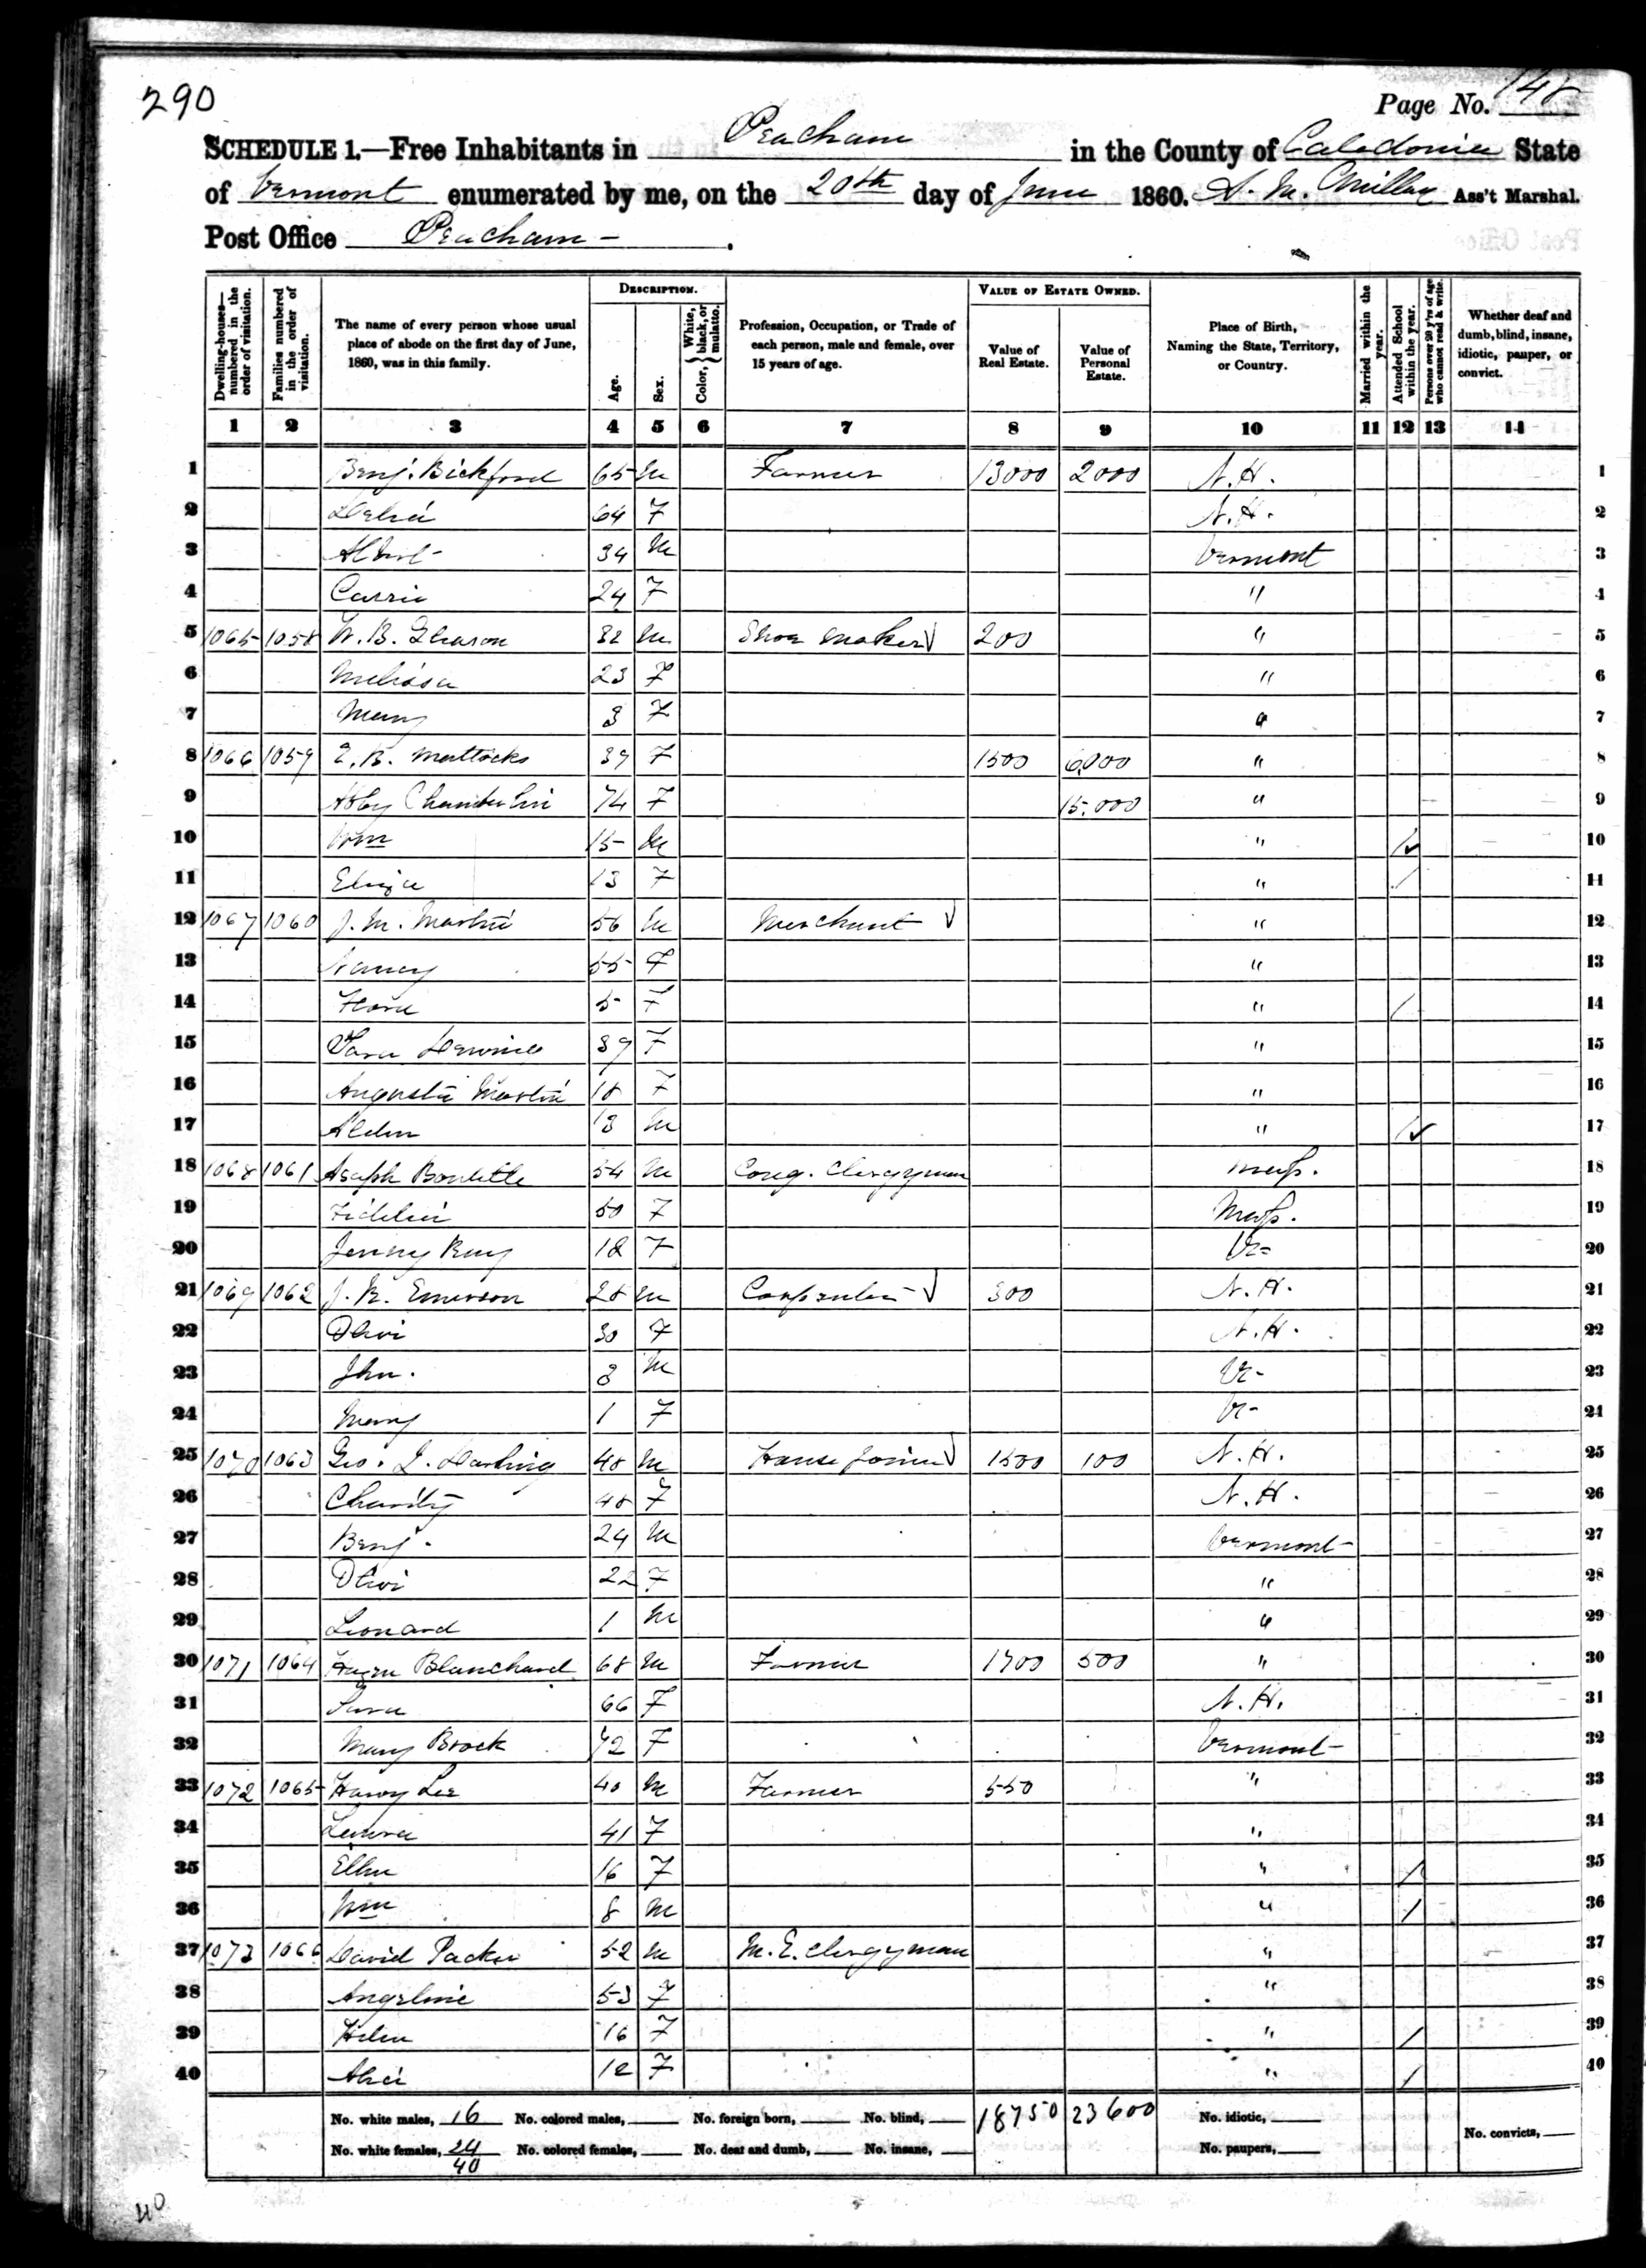 290
Page No. 148
SCHEDULE 1.—Free Inhabitants in Peacham in the County of Caledonia State
of Vermont enumerated by me, on the 20th day of June 1860. Ass't Marshal.
Post Office Peacham - .
Dwelling-houses—numbered in the order of visitation. Families numbered in the order of visitation. The name of every person whose usual place of abode on the first day of June, 1860, was in this family. DESCRIPTION. Age. Sex. Color, { White, black, or mulatto. Profession, Occupation, or Trade of each person, male and female, over 15 years of age. VALUE OF ESTATE OWNED. Value of Real Estate. Value of Personal Estate. Place of Birth, Naming the State, Territory, or Country. Married within the year. Attended School within the year. Persons over 20 y'rs of age who cannot read & write. Whether deaf and dumb, blind, insane, idiotic, pauper, or convict.
1 2 3 4 5 6 7 8 9 10 11 12 13 14
1 Benj. Bickford 65 M Farmer 13000 2000 N.H. 1
2 64 F N.H. 2
3 Albert 34 M Vermont 3
4 Carrie 24 F " 4
5 1065 1058 W. B. Gleason 32 M Shoe Maker 200 " 5
6 Melissa 23 F " 6
7 Mary 3 F " 7
8 1066 1059 E. B. Mattocks 39 F 1500 6,000 " 8
9 Abby Chamberlin 74 F 15,000 " 9
10 Wm 15 M " / 10
11 Eliza 13 F " / 11
12 1067 1060 J. M. Martin 56 M Merchant " 12
13 Nancy 55 F " 13
14 Flora 5 F " / 14
15 39 F " 15
16 Augusta Martin 18 F " 16
17 Alden 13 M " / 17
18 1068 1061 Asaph Boutelle 54 M Cong. Clergyman Mass. 18
19 Fidelia 50 F Mass. 19
20 Jenny Ray 18 F Vt- 20
21 1069 1062 J. R. Emerson 28 M Carpenter 300 N.H. 21
22 Olive 30 F N.H. 22
23 Jhn. 3 M Vt- 23
24 Mary 1 F Vt- 24
25 1070 1063 Geo. J. Darling 48 M House Joiner 1500 100 N.H. 25
26 Charity 48 F N.H. 26
27 Benj. 24 M Vermont 27
28 Olive 22 F " 28
29 Leonard 1 M " 29
30 1071 1064 Blanchard 68 M Farmer 1700 500 " 30
31 Sara 66 F N.H. 31
32 Mary Brock 72 F Vermont 32
33 1072 1065 Harvy Lee 40 M Farmer 550 " 33
34 Laura 41 F " 34
35 Ellen 16 F " / 35
36 Wm 8 M " / 36
37 1073 1066 David Packer 52 M M. E. Clergyman " 37
38 Angeline 53 F " 38
39 Helen 16 F " / 39
40 Alice 12 F " / 40
No. white males, 16 No. colored males, No. foreign born, No. blind, 18750 23600 No. idiotic,
No. white females, 24 No. colored females, No. deaf and dumb, No. insane, No. paupers, No. convicts,
40
40